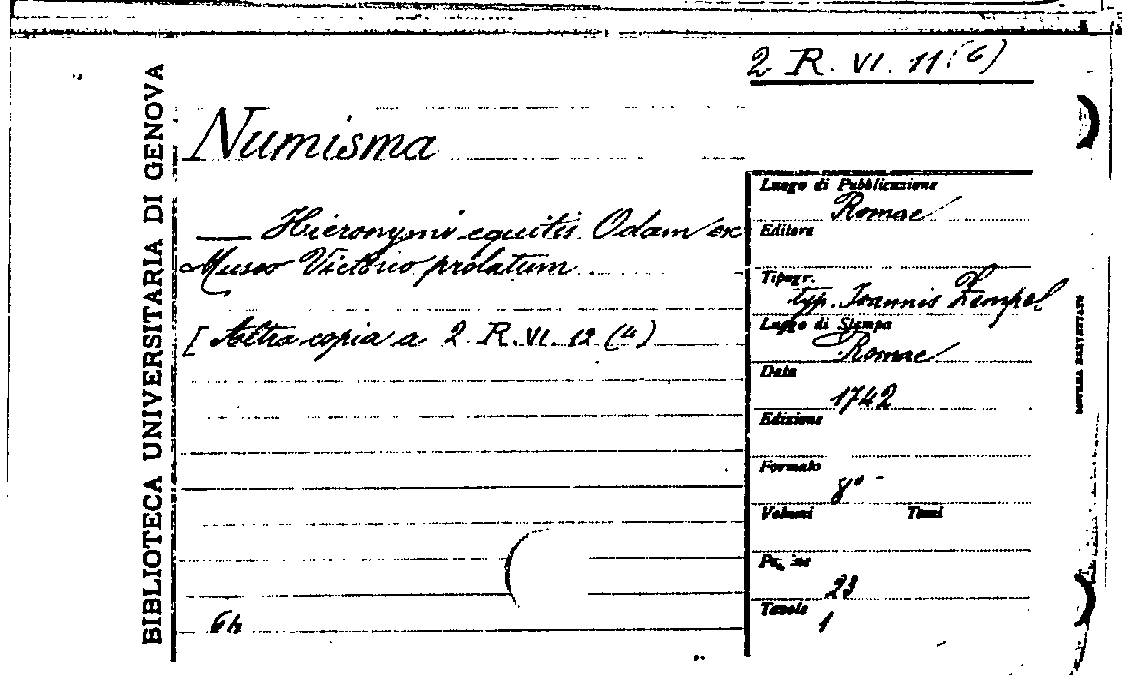 2 R. VI. 11 (6)
BIBLIOTECA UNIVERSITARIA DI GENOVA
Numisma
— Hieronymi equitis Odam ex
Museo Victorio prolatum
[Altra copia a 2. R. VI. 12 (4)
6h
Luogo di Pubblicazione
Romae
Editore
Tipogr.
typ. Ioannis Zempel
Luogo di Stampa
Romae
Data
1742
Edizione
Formato
8°
Volumi Tomi
Pagine
23
Tavole
1